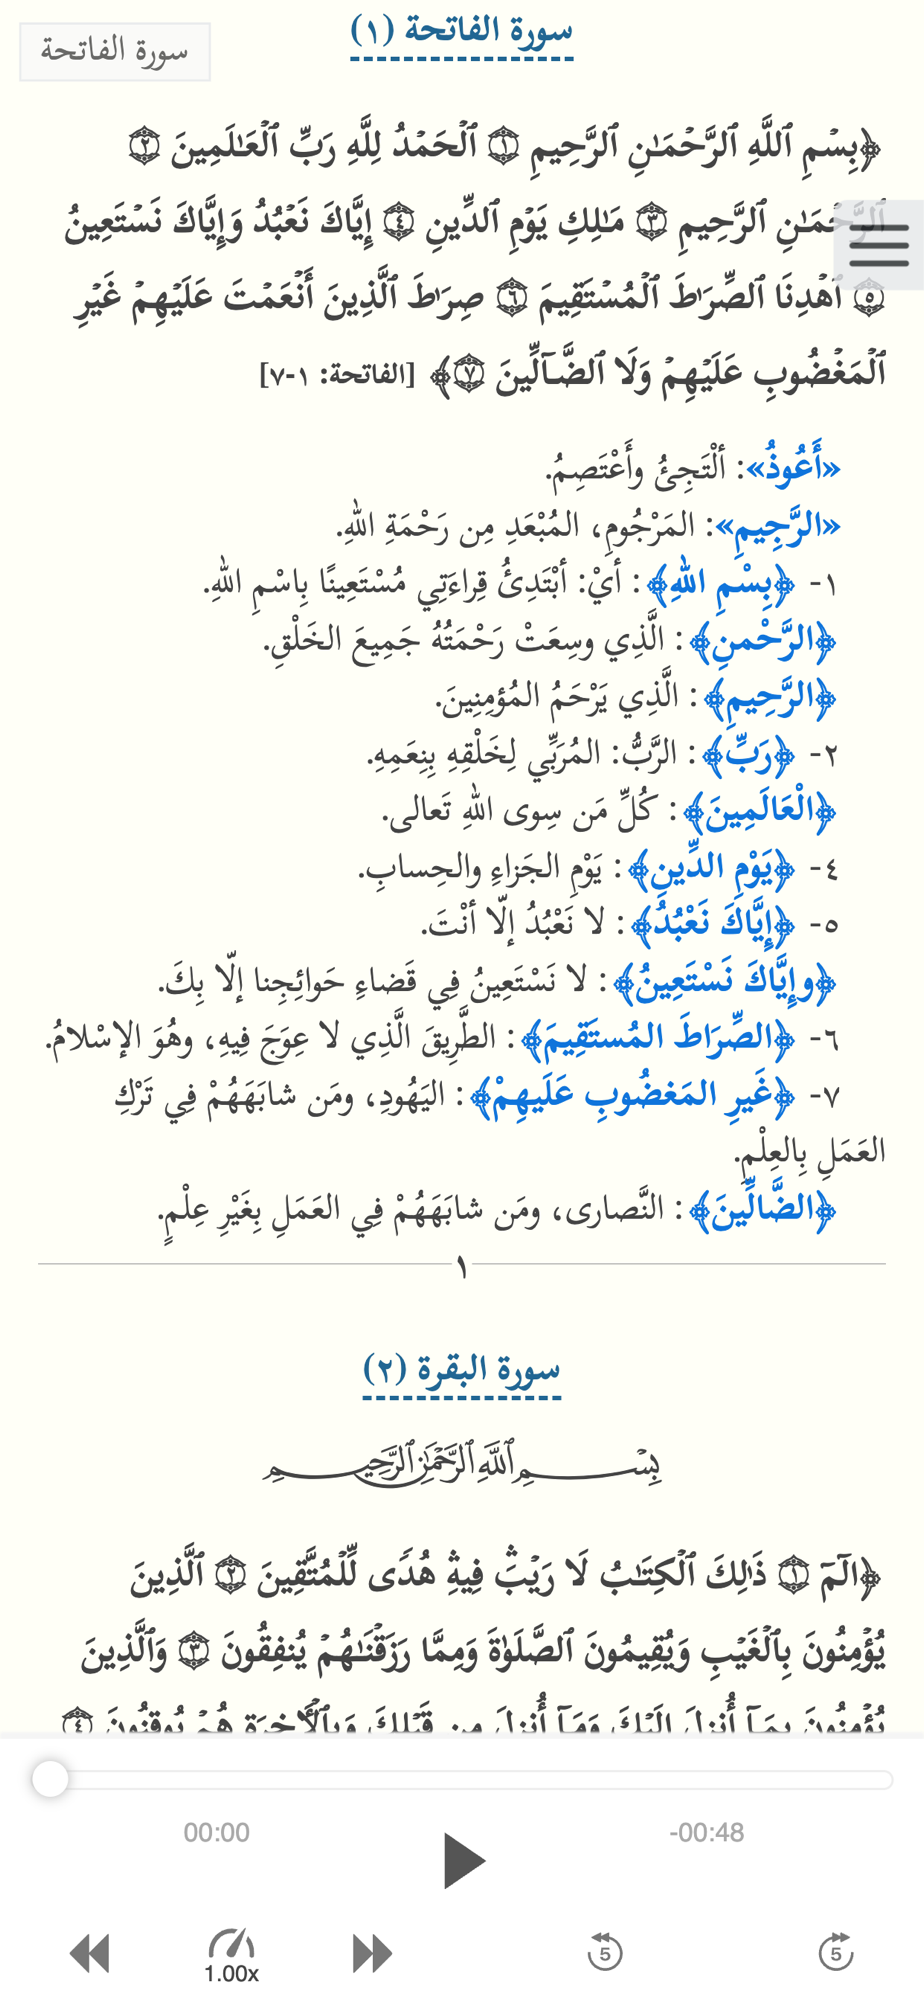 سورة الفاتحة (١)
سورة الفاتحة
﴿بِسْمِ ٱللَّهِ ٱلرَّحْمَـٰنِ ٱلرَّحِيمِ ١ ٱلْحَمْدُ لِلَّهِ رَبِّ ٱلْعَـٰلَمِينَ ٢
ٱلرَّحْمَـٰنِ ٱلرَّحِيمِ ٣ مَـٰلِكِ يَوْمِ ٱلدِّينِ ٤ إِيَّاكَ نَعْبُدُ وَإِيَّاكَ نَسْتَعِينُ
٥ ٱهْدِنَا ٱلصِّرَٰطَ ٱلْمُسْتَقِيمَ ٦ صِرَٰطَ ٱلَّذِينَ أَنْعَمْتَ عَلَيْهِمْ غَيْرِ
ٱلْمَغْضُوبِ عَلَيْهِمْ وَلَا ٱلضَّآلِّينَ ٧﴾ [الفاتحة: ١-٧]
«أَعُوذُ»: أَلْتَجِئُ وأَعْتَصِمُ.
«الرَّجِيمِ»: المَرْجُومِ، المُبْعَدِ مِن رَحْمَةِ اللهِ.
١- ﴿بِسْمِ اللهِ﴾: أيْ: أبْتَدِئُ قِراءَتِي مُسْتَعِينًا بِاسْمِ اللهِ.
﴿الرَّحْمنِ﴾: الَّذِي وسِعَتْ رَحْمَتُهُ جَمِيعَ الخَلْقِ.
﴿الرَّحِيمِ﴾: الَّذِي يَرْحَمُ المُؤمِنِينَ.
٢- ﴿رَبِّ﴾: الرَّبُّ: المُرَبِّي لِخَلْقِهِ بِنِعَمِهِ.
﴿الْعَالَمِينَ﴾: كُلِّ مَن سِوى اللهِ تَعالى.
٤- ﴿يَوْمِ الدِّينِ﴾: يَوْمِ الجَزاءِ والحِسابِ.
٥- ﴿إِيَّاكَ نَعْبُدُ﴾: لا نَعْبُدُ إلّا أنْتَ.
﴿وإِيَّاكَ نَسْتَعِينُ﴾: لا نَسْتَعِينُ فِي قَضاءِ حَوائِجِنا إلّا بِكَ.
٦- ﴿الصِّرَاطَ المُستَقِيمَ﴾: الطَّرِيقَ الَّذِي لا عِوَجَ فِيهِ، وهُوَ الإسْلامُ.
٧- ﴿غَيرِ المَغضُوبِ عَلَيهِمْ﴾: اليَهُودِ، ومَن شابَهَهُمْ فِي تَرْكِ
العَمَلِ بِالعِلْمِ.
﴿الضَّالِّينَ﴾: النَّصارى، ومَن شابَهَهُمْ فِي العَمَلِ بِغَيْرِ عِلْمٍ.
١
سورة البقرة (٢)
بِسْمِ ٱللَّهِ ٱلرَّحْمَـٰنِ ٱلرَّحِيمِ
﴿الٓمٓ ١ ذَٰلِكَ ٱلْكِتَـٰبُ لَا رَيْبَۛ فِيهِۛ هُدًى لِّلْمُتَّقِينَ ٢ ٱلَّذِينَ
يُؤْمِنُونَ بِٱلْغَيْبِ وَيُقِيمُونَ ٱلصَّلَوٰةَ وَمِمَّا رَزَقْنَـٰهُمْ يُنفِقُونَ ٣ وَٱلَّذِينَ
يُؤْمِنُونَ بِمَآ أُنزِلَ إِلَيْكَ وَمَآ أُنزِلَ مِن قَبْلِكَ وَبِٱلْـَٔاخِرَةِ هُمْ يُوقِنُونَ ٤
00:00
-00:48
1.00x
5
5